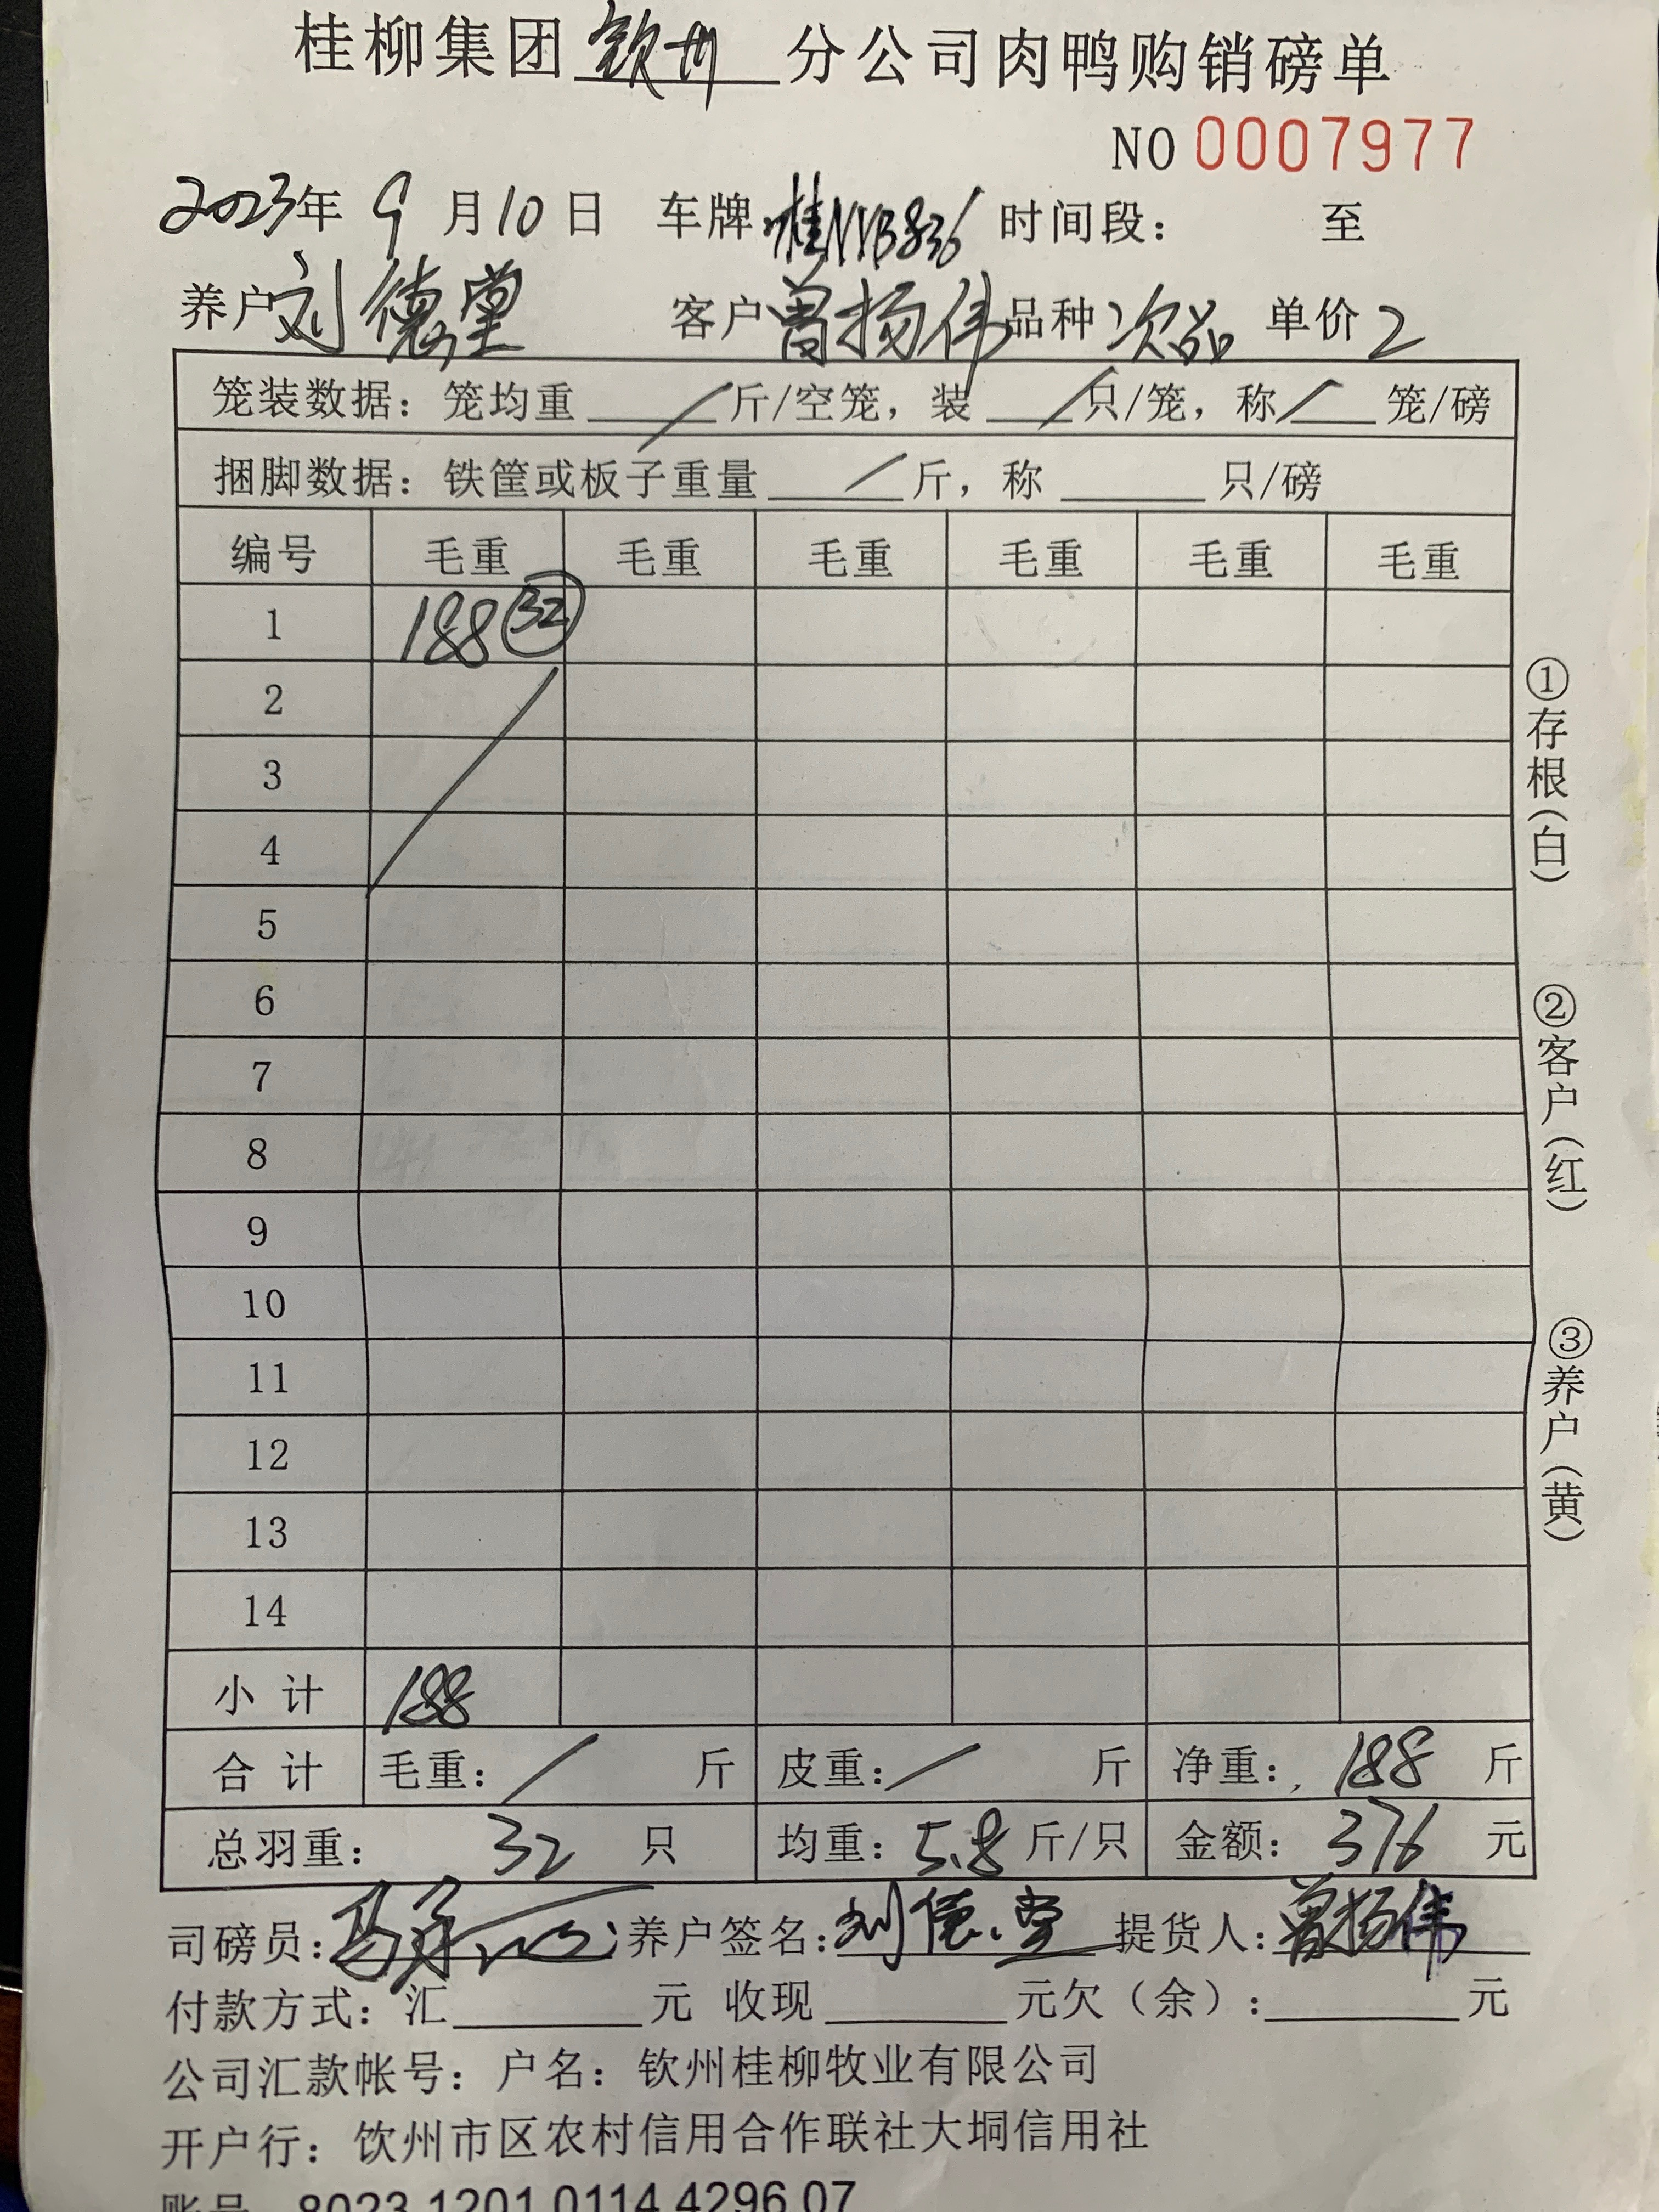 桂柳集团 钦州 分公司肉鸭购销磅单
NO 0007977
2023年 9 月 10 日 车牌: 桂NYB836 时间段: 至
养户 刘德堂 客户 曾扬伟 品种 次品 单价 2
笼装数据: 笼均重 / 斤/空笼, 装 / 只/笼, 称 / 笼/磅
捆脚数据: 铁筐或板子重量 / 斤, 称 只/磅
编号 毛重 毛重 毛重 毛重 毛重 毛重
1 188 32
2
3
4
5
6
7
8
9
10
11
12
13
14
小计 188
合计 毛重: / 斤 皮重: / 斤 净重: 188 斤
总羽重: 32 只 均重: 5.8 斤/只 金额: 376 元
司磅员: 养户签名: 刘德堂 提货人: 曾扬伟
付款方式: 汇 元 收现 元欠(余): 元
公司汇款帐号: 户名: 钦州桂柳牧业有限公司
开户行: 钦州市区农村信用合作联社大垌信用社
账号 8023 1201 0114 4296 07
①存根(白)
②客户(红)
③养户(黄)